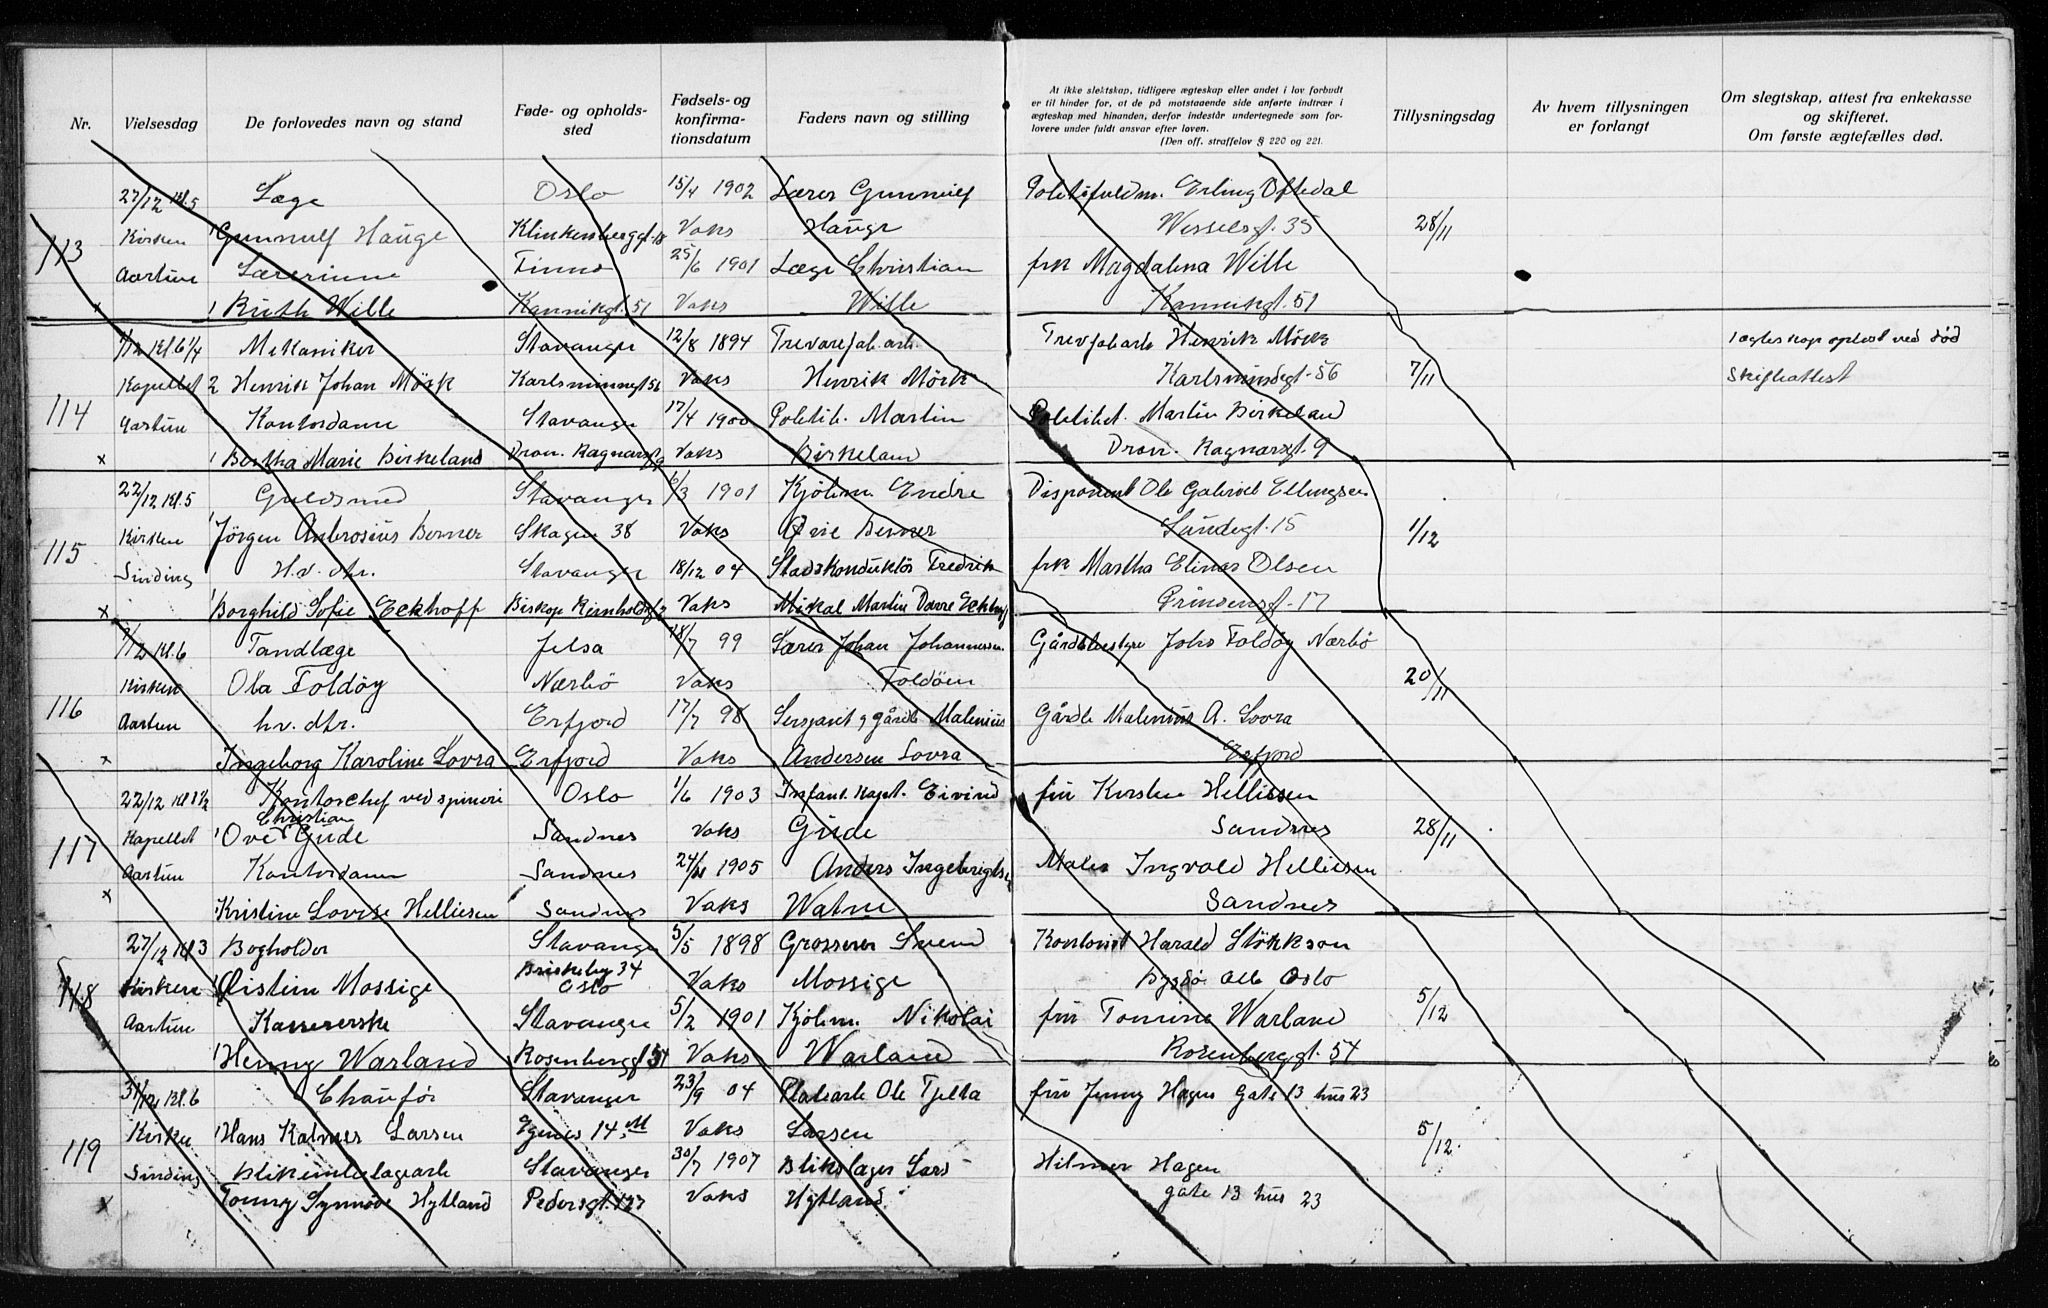 Nr.
Vielsesdag
De forlovedes navn og stand
Føde- og opholds-
sted
Fødsels- og
konfirma-
tionsdatum
Faders navn og stilling
At ikke slektskap, tidligere ægteskap eller andet i lov forbudt
er til hinder for, at de på motstaaende side anførte indtrær i
ægteskap med hinanden, derfor indestår undertegnede som for-
lovere under fuldt ansvar efter loven.
(Den off. straffelov § 220 og 221.
Tillysningsdag
Av hvem tillysningen
er forlangt
Om slegtskap, attest fra enkekasse
og skifteret.
Om første ægtefælles død.
27/12 kl. 5 Læge Oslo 15/4 1902 Lærer Gunnulf Politifuldm. Erling Oftedal
113 Kirken 1 Gunnulf Hauge Klinkenberggt. 18 Vaks Hauge Wesselsgt. 35 28/11
Aartun Lærerinne Tinno 25/6 1901 Læge Christian frk Magdalena Wille
x 1 Ruth Wille Kannikgt. 51 Vaks Wille Kannikgt. 51
1/12 Kl. 6 1/4 Mekaniker Stavanger 12/8 1894 Trevarefab.arb. Trevfabarb Henrik Mörk 1 ægteskap opløst ved död
Kapellet 2 Henrik Johan Mörk Karlsminnegt 56 Vaks Henrik Mörk Karlsmindegt. 56 7/11 Skifteattest
114 Aartun Kontordame Stavanger 17/4 1900 Politib. Martin Politibet. Martin Birkeland
x 1 Bertha Marie Birkeland Dron. Ragnasgt 9 Vaks Birkeland Dron. Ragnasgt. 9
22/12 kl. 5 Guldsmed Stavanger 6/3 1901 Kjöbm. Endre Disponent Ole Gabriel Ellingsen
115 Kirken 1 Jörgen Ambrosius Berner Skagen 38 Vaks Berner Sundegt. 15 1/12
Sinding H.v. dtr. Stavanger 18/12 04 Stadskonduktör Fredrik frk Martha Elinas Olsen
x 1 Borghild Sofie Eckhoff Biskop Reinholdsgt 7 Vaks Mikal Martin Eckhoff 17
1/12 kl. 6 Tandlæge Jelsa 18/7 99 Lærer Johan Johannessen Gårdbestyre Johs Foldöy Nærbö
116 Kirken Ola Foldöy Nærbö Vaks Foldöen 20/11
Aartun hv. dtr. Erfjord 17/7 98 Sersjant g gårdb Malenius Gårdb Malenius A. Lovra
x Ingeborg Karoline Lovra Erfjord Vaks Andersen Lovra Erfjord
22/12 kl 3 1/2 Kontorchef ved spineri Oslo 1/6 1903 Infant. kapt. Eivind fru Kirsten Helliesen
Christian
117 Kapellet 1 Ove Gude Sandnes Vaks Gude Sandnes 28/11
Aartun Kontordame Sandnes 1905 Anders Ingebrigtsen Maler Ingvald Helliesen
x 1 Kristine Lovise Helliesen Sandnes Vaks Watne Sandnes
27/12 kl 3 Bogholder Stavanger 5/5 1898 Grosserer Svend Kontorist Harald Stökkson
118 Kirken 1 Øistein Mossige Briskeby 34 Oslo Vaks Mossige Bygdö Alle Oslo
Aartun Kassererske Stavanger 5/2 1901 Kjöbm. Nikolai fru Tomine Warland 5/12
1 Henny Warland Rosenberggt 54 Vaks Warland Rosenberggt. 54
31/12 kl. 6 Chauför Stavanger 23/9 04 Ole Tjelta fru Jenny Hagen Gate 13 hus 23
119 Kirken 1 Hans Kalmer Larsen Egenes 14 Vaks Larsen 5/12.
Sinding Stavanger 30/7 1907 Blikslager Lars Hilmer Hagen
x Tonny Synnöve Hytland Pedersgt. 127 Vaks Hytland gate 13 hus 23